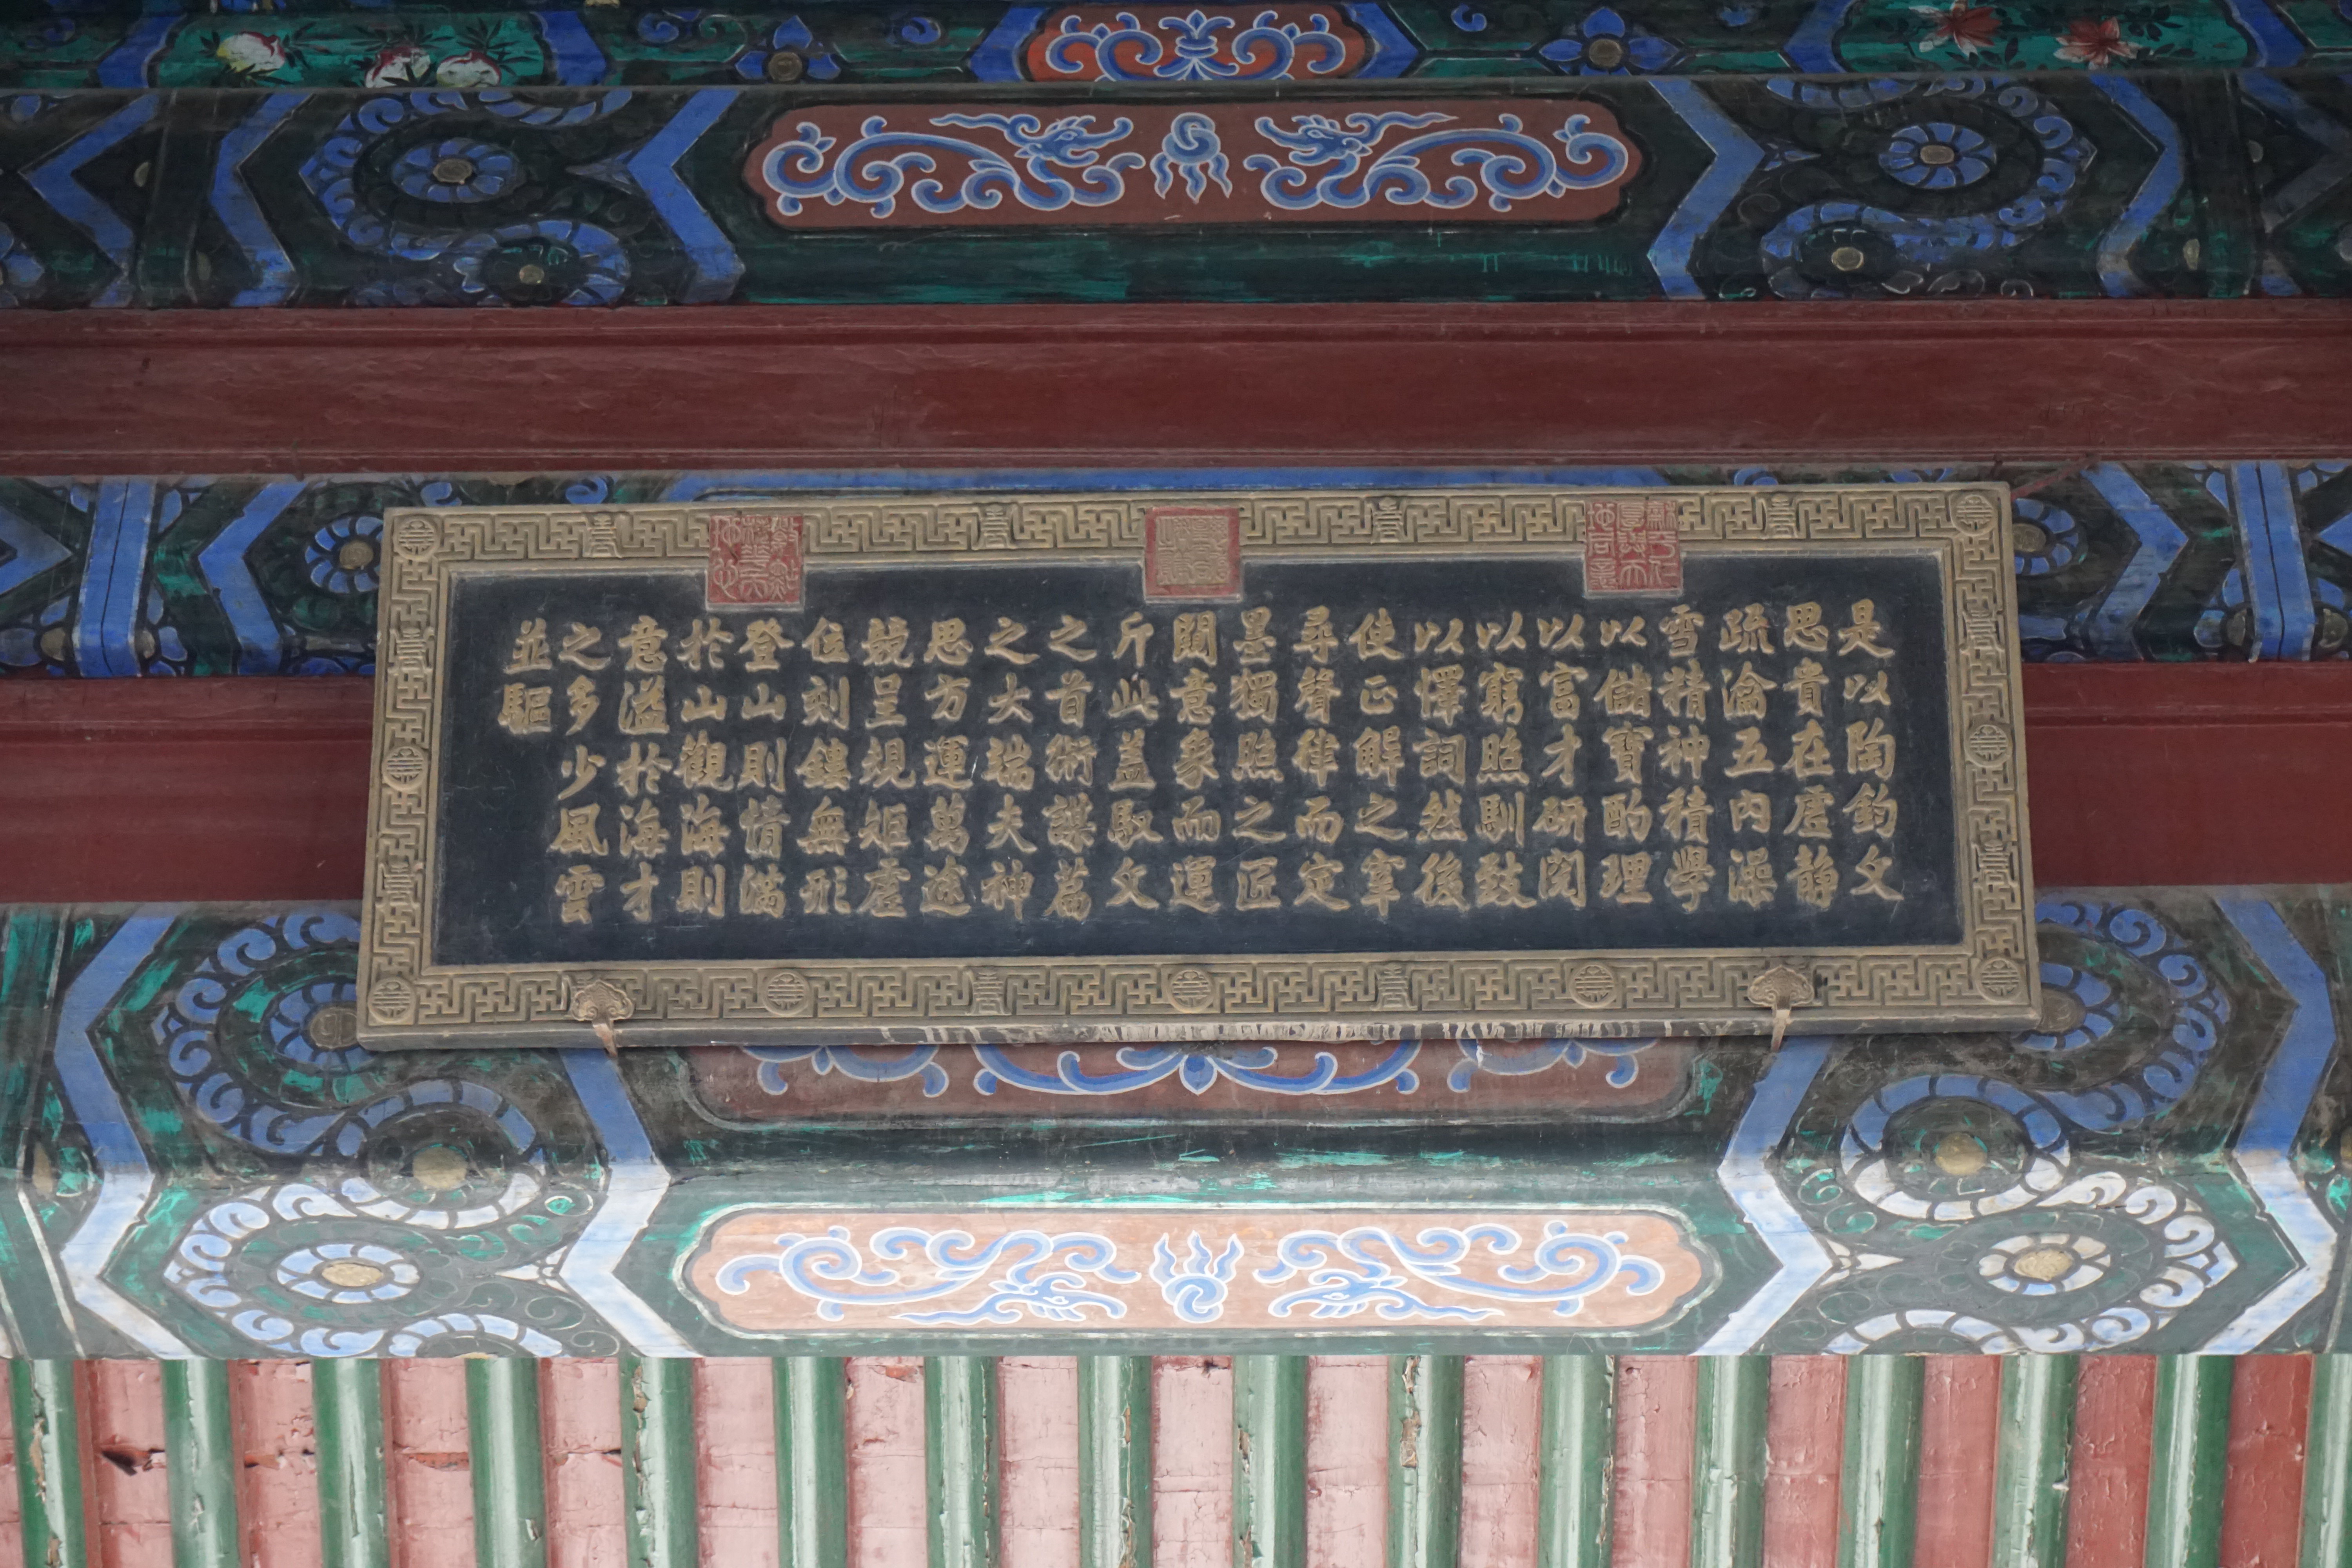 是以陶鈞文
思貴在虛静
疏瀹五内澡
雪精神積學
以儲寶酌理
以富才研閱
以窮照馴致
以懌詞然後
使正解之宰
尋聲律而定
墨獨照之匠
闚意象而運
斤此蓋馭文
之首術謀篇
之大端夫神
思方運萬途
競呈規矩虛
位刻鏤無形
登山則情滿
於山觀海則
意溢於海才
之多少風雲
並驅